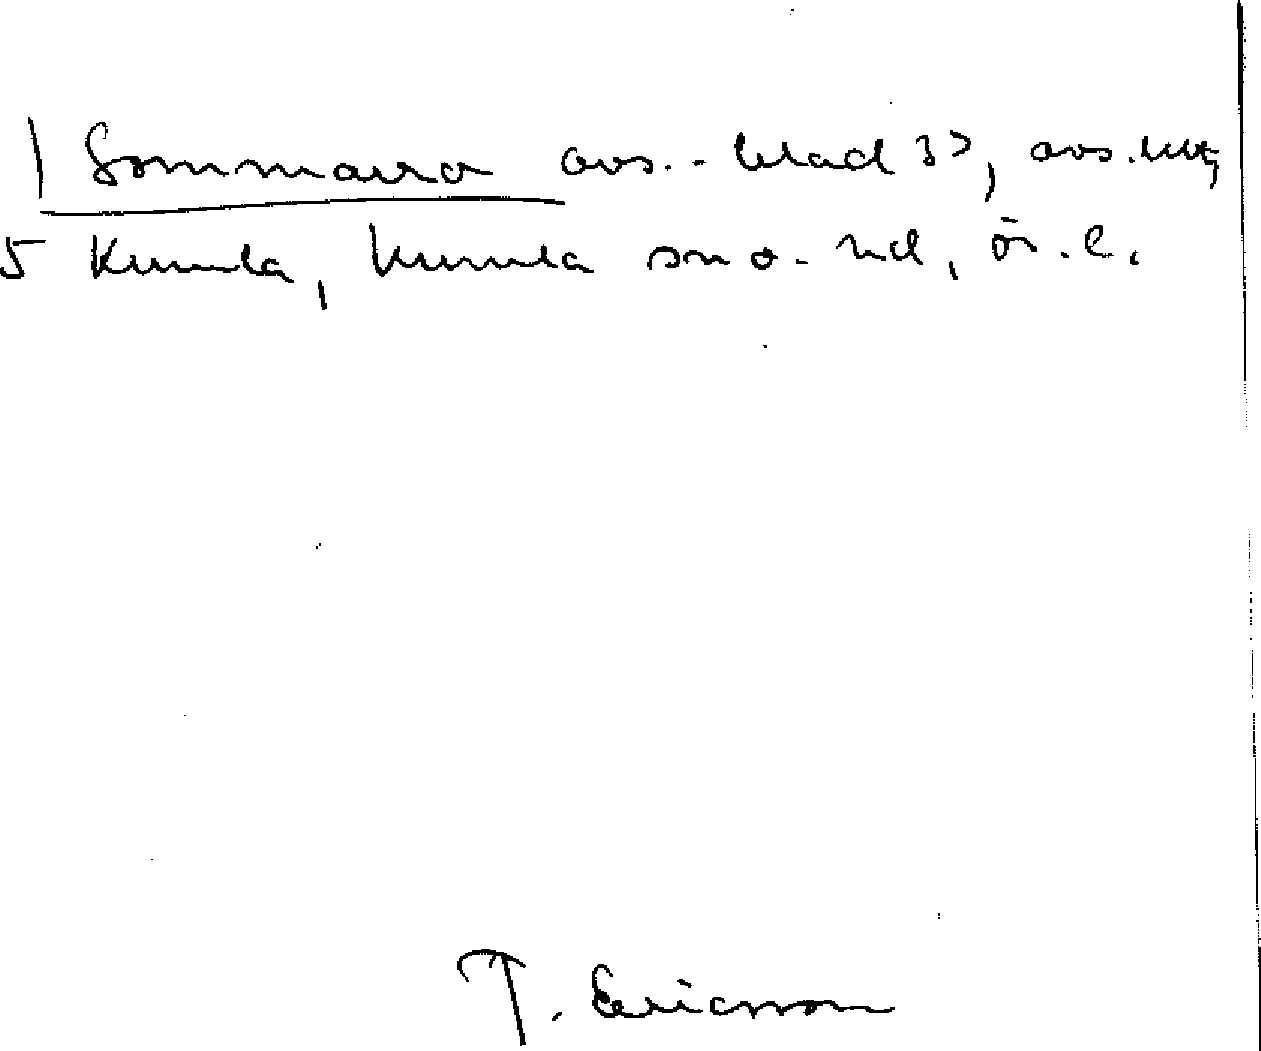 Sommarro avs.-blad 3), avs.utg,
5 Kumla, Kumla sn o. hd, ör. l.
T. Ericsson